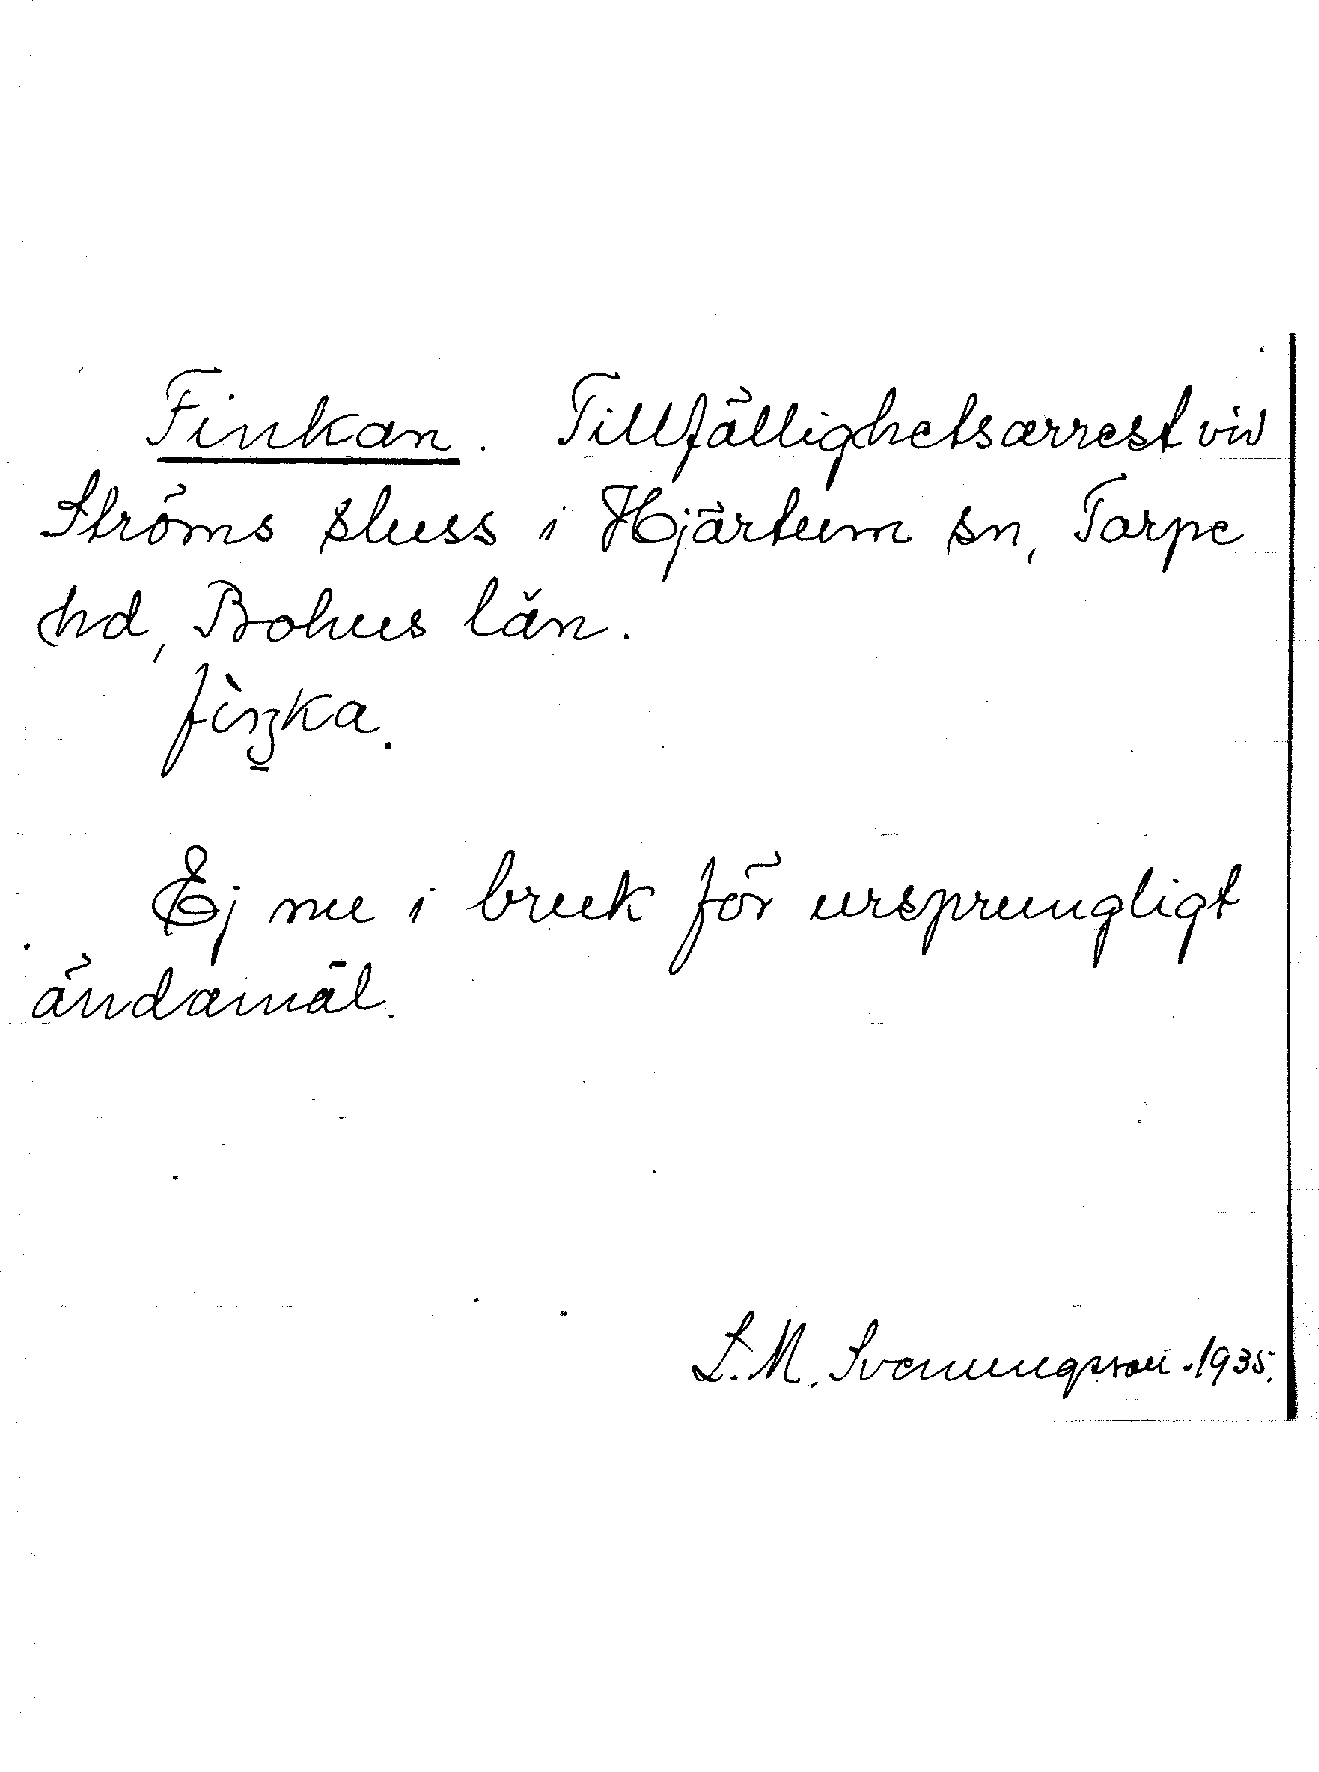 Finkan. Tillfällighetsarrest vid
Ströms sluss i Hjärtum sn, Torpe
hd, Bohus län.
fìŋka.
Ej nu i bruk för ursprungligt
ändamål.
L. M. Svenungsson. 1935.